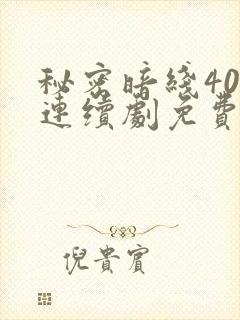 秘密暗綫40
連續劇免費
倪貴賓